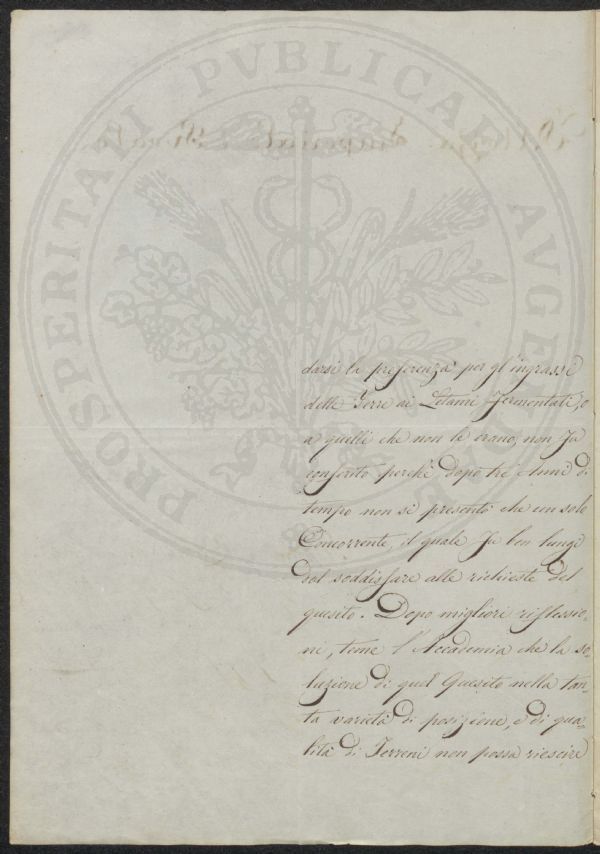 PROSPERITATI PVBLICAE AVGENDAE
darsi la preferenza per gl'ingrassi
delle Terre ai Letami fermentati, o
a quelli che non lo erano, non fu
conferito perchè dopo tre Anni di
tempo non si presentò che un solo
Concorrente, il quale fu ben lungi
dal soddisfare alle richieste del
quesito. Dopo migliori riflessio-
ni, teme l'Accademia che la so-
luzione di quel Quesito nella tan-
ta varietà di posizione, e di qua-
lità di Terreni non possa riescire